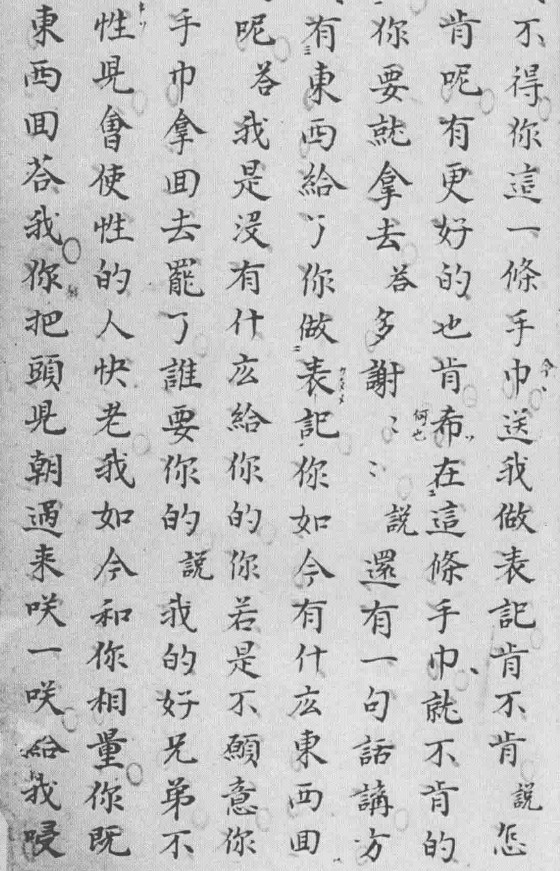 不得你這一條手巾送我做表記肯不肯 説 怎
肯呢有更好的也肯希在這條手巾就不肯的
你要就拿去 荅 多謝〻〻 説 還有一句話講方
有東西給了你做表記你如今有什庅東西囬
呢 荅 我是沒有什庅給你的你若是不願意你
手巾拿囬去罷了誰要你的 説 我的好兄弟不
性見會使性的人快老我如今和你相量你既
東西囬荅我你把頭見朝過来咲一咲給我